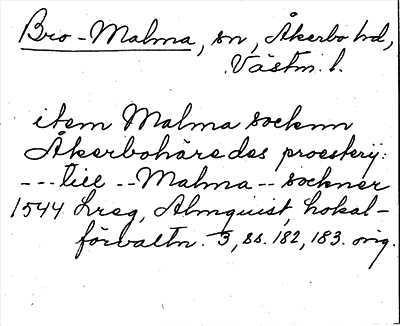 Bro-Malma, sn, Åkerbo hd,
Västm. l.
item Malma socknn
Åkerbohäredes proesterij:
---till --Malma-- sockner
1544 Lreg, Almquist, Lokal-
förvaltn. 3, ss. 182, 183. orig.